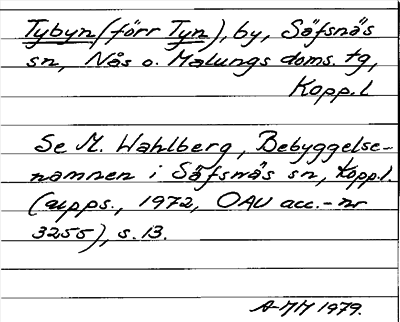 Tybyn (förr Tyn), by, Säfsnäs
sn, Nås o. Malungs doms. tg,
Kopp.l
Se M. Wahlberg, Bebyggelse-
namnen i Säfsnäs sn, Kopp.l.
(upps., 1972, OAU acc.-nr
3255), s. 13.
A-MM 1979.